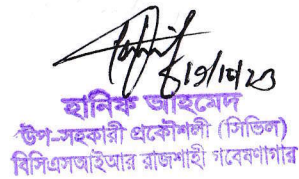 হানিফ আহমেদ
উপ-সহকারী প্রকৌশলী (সিভিল)
বিসিএসআইআর রাজশাহী গবেষণাগার